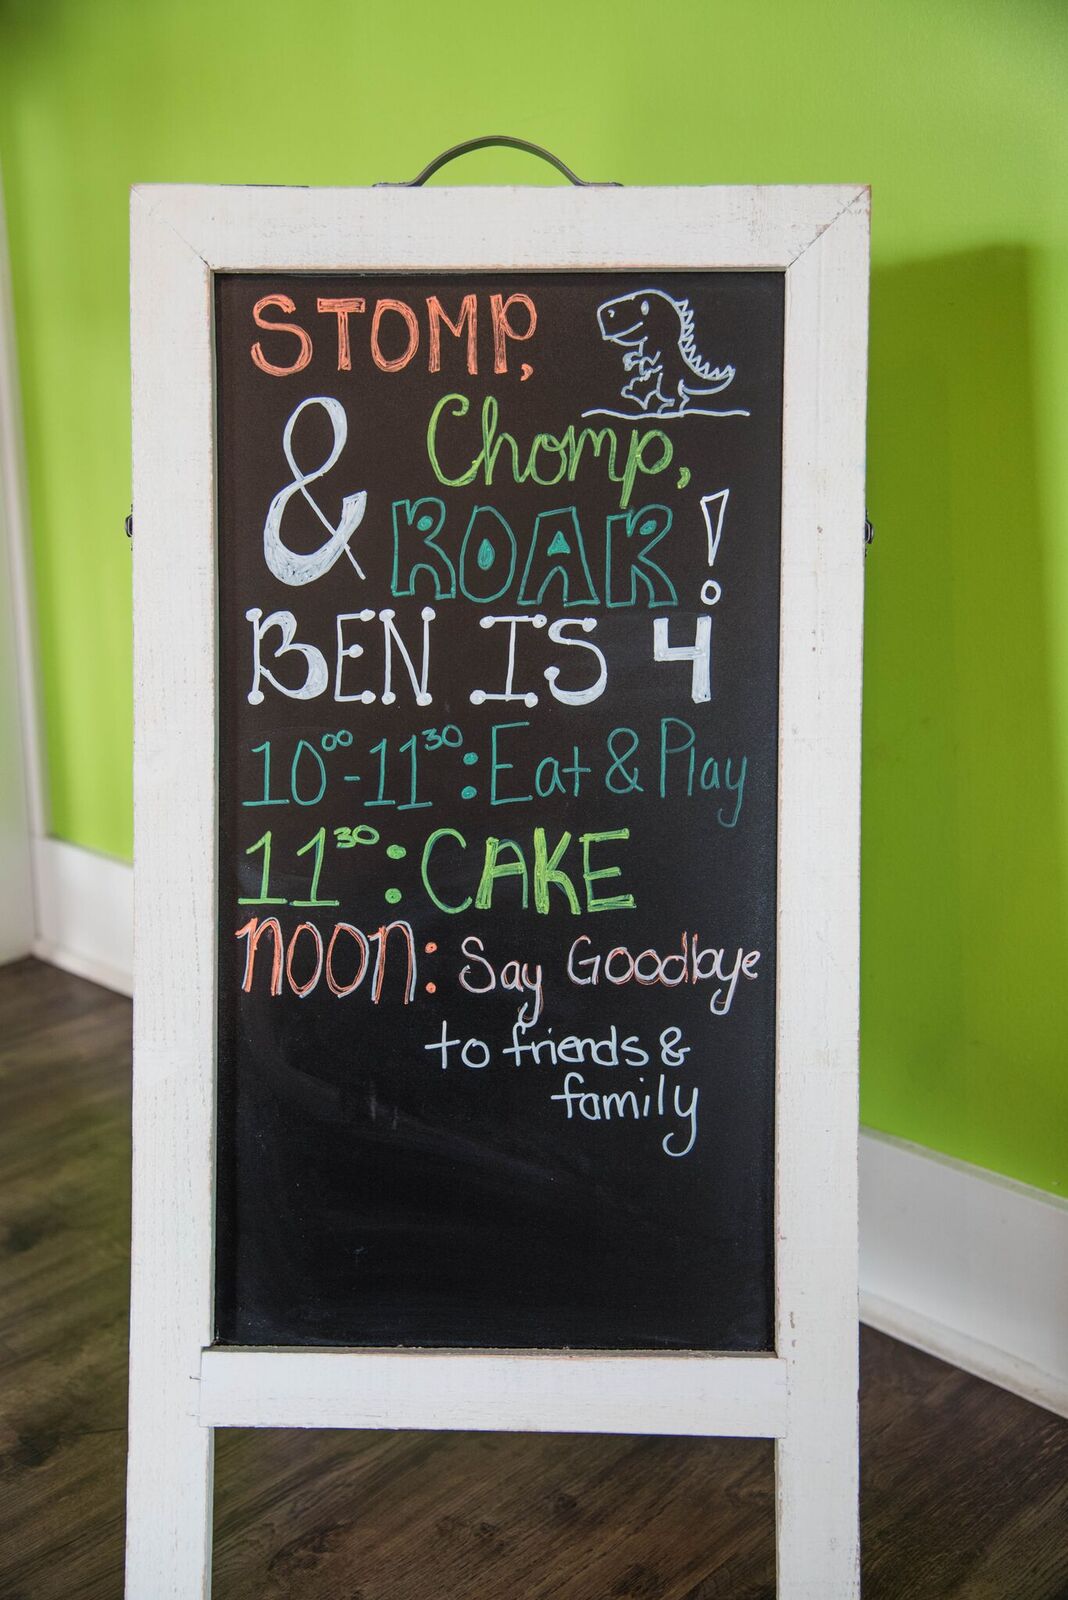 STOMP,
Chomp,
& ROAR!
BEN IS 4
10⁰⁰-11³⁰: Eat & Play
11³⁰: CAKE
NOON: Say Goodbye
to friends &
family